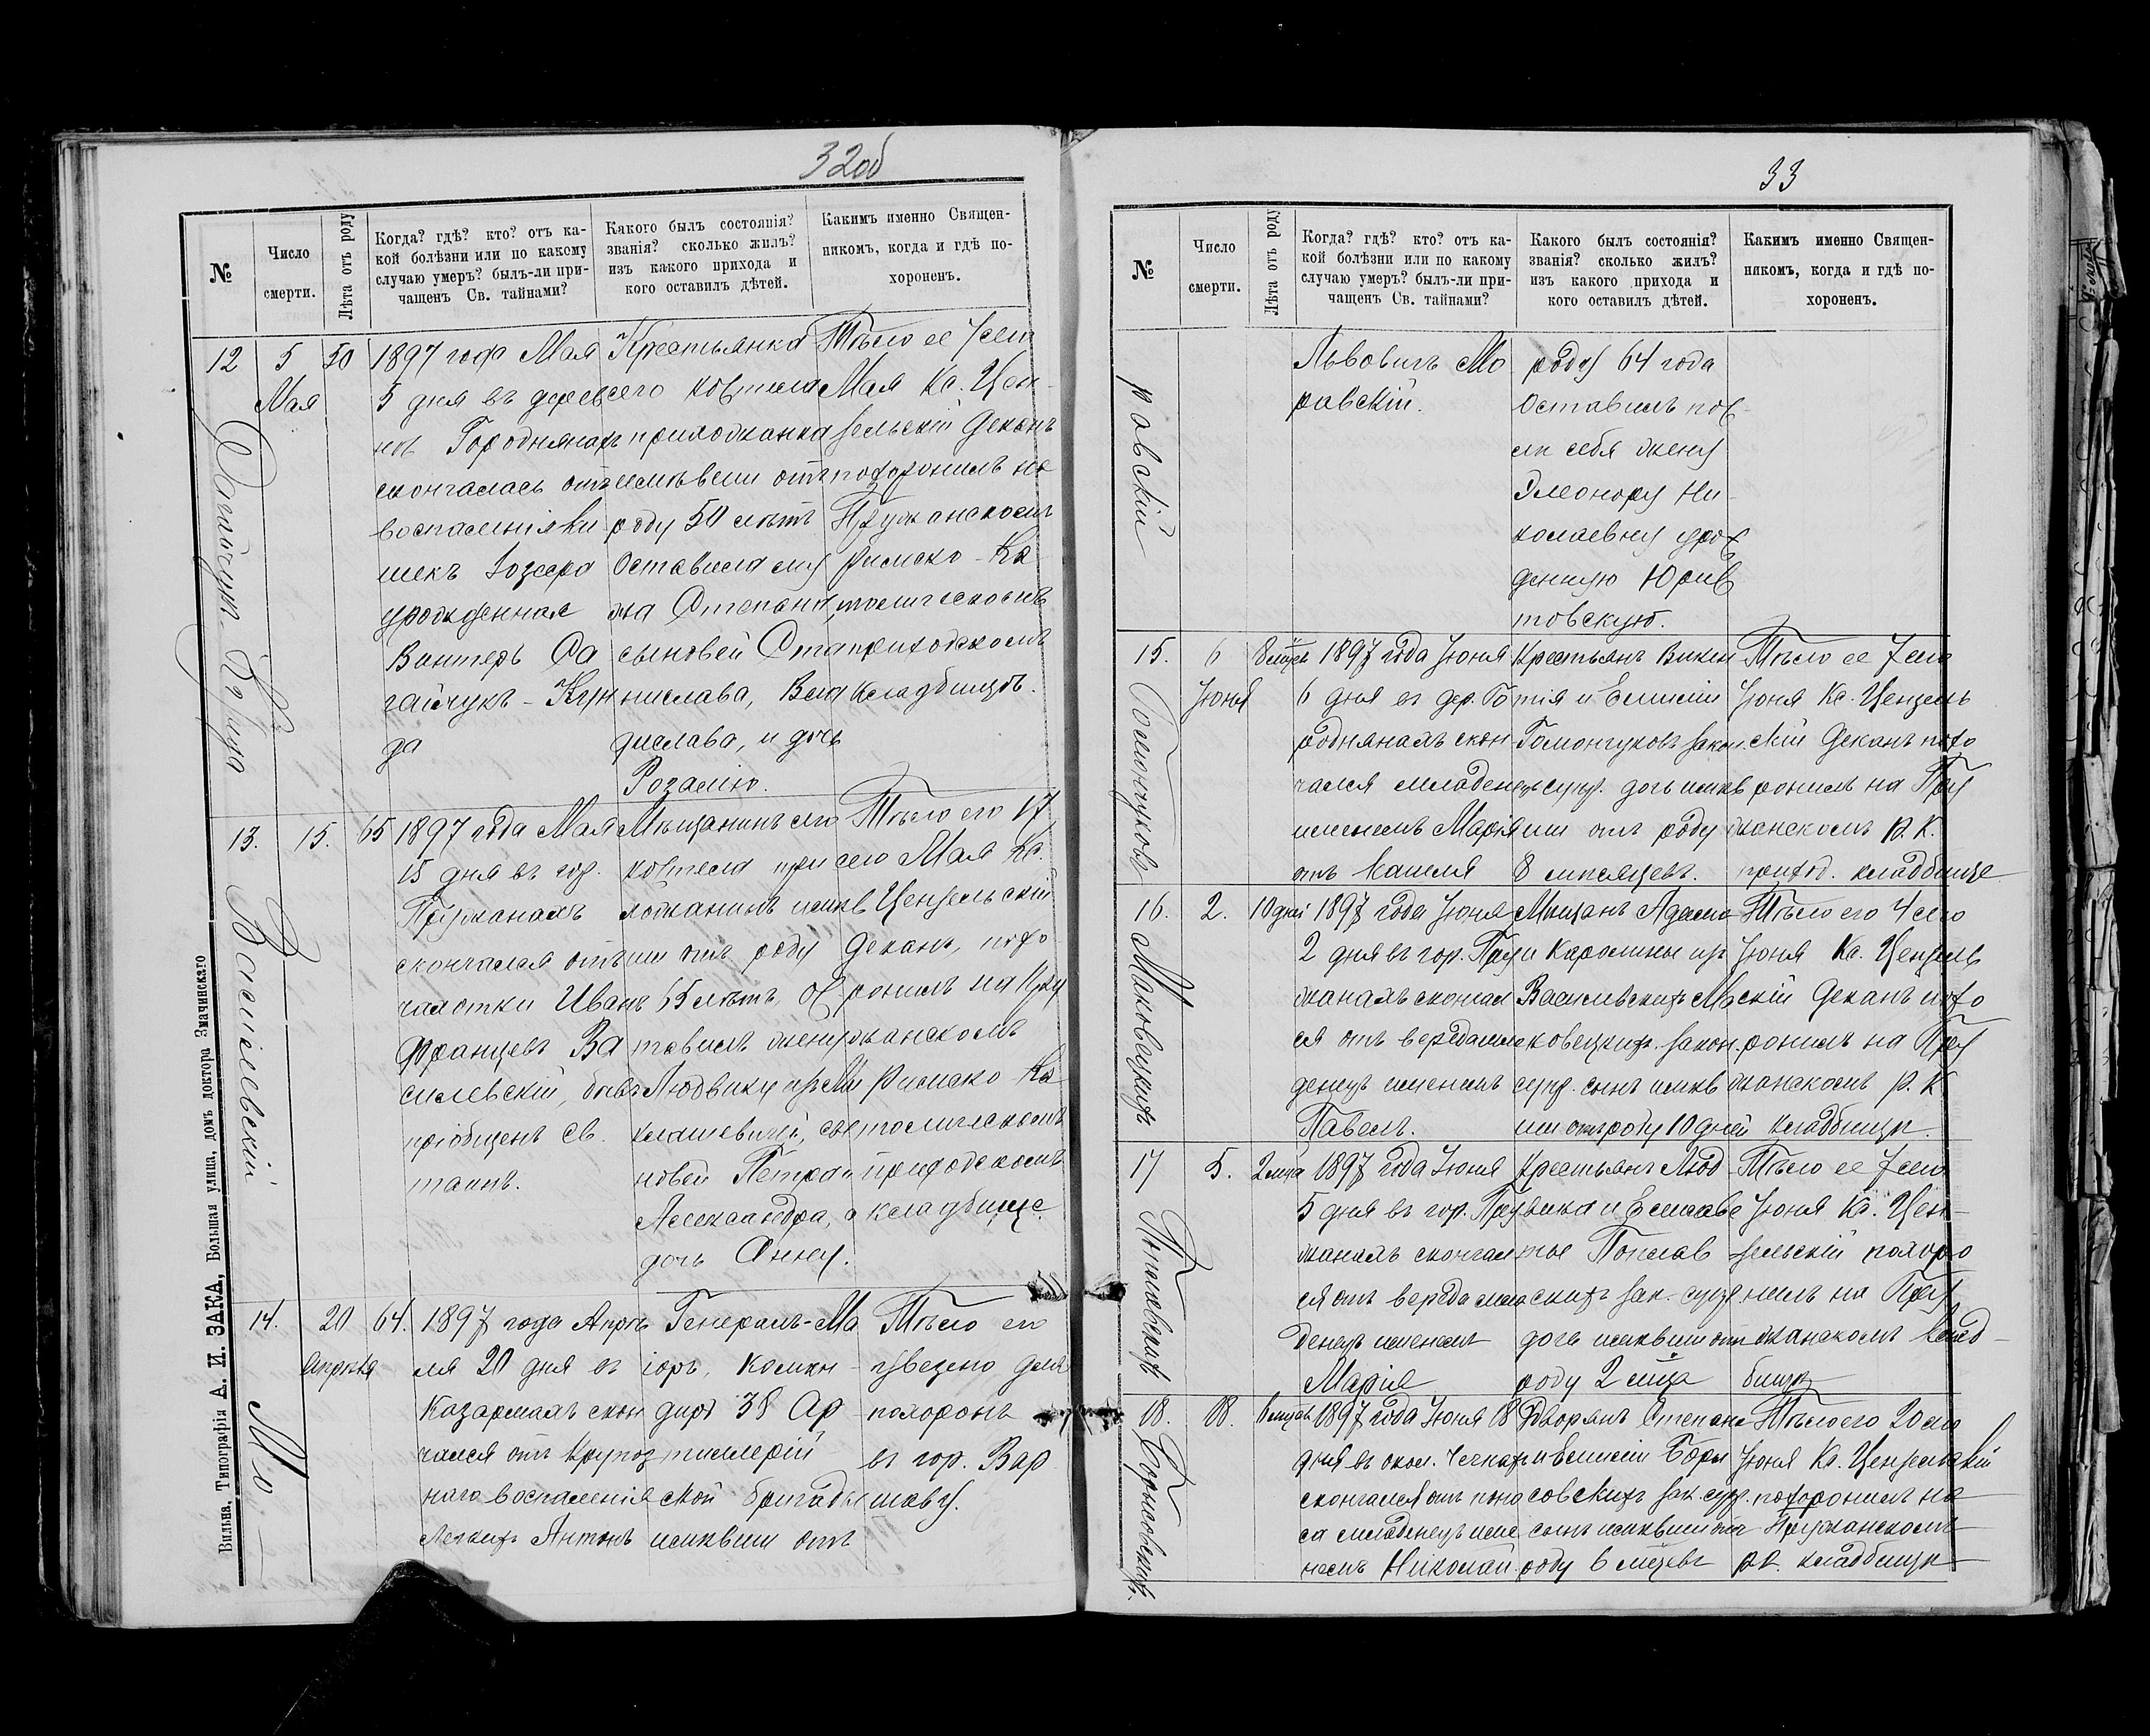 32об
№
Число
смерти.
Лѣта отъ роду
Когда? гдѣ? кто? отъ ка-
кой болѣзни или по какому
случаю умеръ? былъ-ли при-
чащенъ Св. тайнами?
Какого былъ состоянія?
званія? сколько жилъ?
изъ какого прихода и
кого оставилъ дѣтей.
Какимъ именно Священ-
никомъ, когда и гдѣ по-
хороненъ.
12
5
Мая
50
1897 года Мая
5 дня въ дерев
нѣ Городнянахъ
скончалась отъ
воспаленія ки
шекъ
урожденная
Винтеръ Са
гайчукъ-
да
Крестьянка
сего костела
прихожанка
жившая отъ
роду 50 лѣтъ
Оставила му
жа Степана,
сыновей Ста
нислава, Вла
дислава, и дочь
Розалію.
Тѣло ее 7 сего
Мая Кс. Цен-
зельскій Деканъ
похоронилъ на
Пружанскомъ
Римско-Ка
толическомъ
приходскомъ
кладбищѣ.
13.
15.
65
Василевскій
1897 года Мая
15 дня въ гор.
Пружанахъ
скончался отъ
чахотки Иванъ
Францевъ Ва
силевскій, бывъ
пріобщенъ Св.
таинъ.
Мѣщанинъ сего
костела при
хожанинъ жив
ши отъ роду
65 лѣтъ, Ос
тавилъ жену
Людвику изъ Ми
клашевичей, сы
новей Петра и
Александра, а
дочь Анну.
Тѣло его 17
сего Мая Кс.
Цензельскій
деканъ, похо
ронилъ на Пру
жанскомъ
Римско Ка
толическомъ
приходскомъ
кладбище.
14.
20
апрѣля
64.
Мо-
1897 года Апрѣ
ля 20 дня въ
Казармахъ скон
чался отъ Крупоз
наго воспаленія
Легкихъ Антонъ
Генералъ-Ма
іоръ, коман-
диръ 38 Ар
тиллерій
ской бригады
живши отъ
Тѣло его
увезено для
похоронъ
въ гор. Вар
шаву.
Вильна, Типографія А. И. ЗАКА, Большая улица, домъ доктора Змачинскаго
33
№
Число
смерти.
Лѣта отъ роду
Когда? гдѣ? кто? отъ ка-
кой болѣзни или по какому
случаю умеръ? былъ-ли при-
чащенъ Св. тайнами?
Какого былъ состоянія?
званія? сколько жилъ?
изъ какого прихода и
кого оставилъ дѣтей.
Какимъ именно Священ-
никомъ, когда и гдѣ по-
хороненъ.
равскій
Львовичъ Мо
равскій.
роду 64 года
Оставилъ пос-
ли себя жену
Элеонору Ни-
колаевну урож
денную
товскую.
15.
6
Іюня
8 мцев
1897 года Іюня
6 дня въ дер. Го
роднянахъ скон
чался младенецъ
именемъ Марія
отъ кашля
Крестьянъ Викен
тія и Емиліи
Гомончуковъ закон.
супр. дочь жив
ши отъ роду
8 мѣсяцевъ.
Тѣло ее 7 сего
Іюня Кс. Цензель
скій Деканъ похо
ронилъ на Пру
жанскомъ Р. К.
приход. кладбище
16.
2.
10 дней
Маковецкихъ
1897 года Іюня
2 дня въ гор. Пру
жанахъ скончал
ся отъ вереда мла
денецъ именемъ
Павелъ.
Мѣщанъ Адама
и Каролины изъ
Василевскихъ Ма
ковецкихъ закон.
супр. сынъ жив
ши отъ роду 10 дней
Тѣло его 4 сего
Іюня Кс. Цензель
скій Деканъ похо
ронилъ на Пру
жанскомъ Р. К
кладбищѣ.
17
5.
2 мца
1897 года Іюня
5 дня въ гор. Пру
жанахъ скончал
ся отъ вереда мла
денецъ именемъ
Марія
Крестьянъ Люд
вика и Елизаве
ты Поплав
скихъ зак. супр.
дочь живши отъ
роду 2 мца
Тѣло ее 7 сего
Іюня Кс. Цен-
зельскій похоро
нилъ на Пру
жанскомъ клад-
бищѣ
18.
18.
6 мцевъ
Борисовскихъ.
1897 года Іюня 18
дня въ окол. Чечкахъ
скончался отъ поно
са младенецъ име
немъ Николай.
Дворянъ Степана
и Емиліи Бори
совскихъ зак. супр.
сынъ живши отъ
роду 6 мцевъ
Тѣло его 20 сего
Іюня Кс. Цензельскій
похоронилъ на
Пружанскомъ
Р.К. кладбищѣ